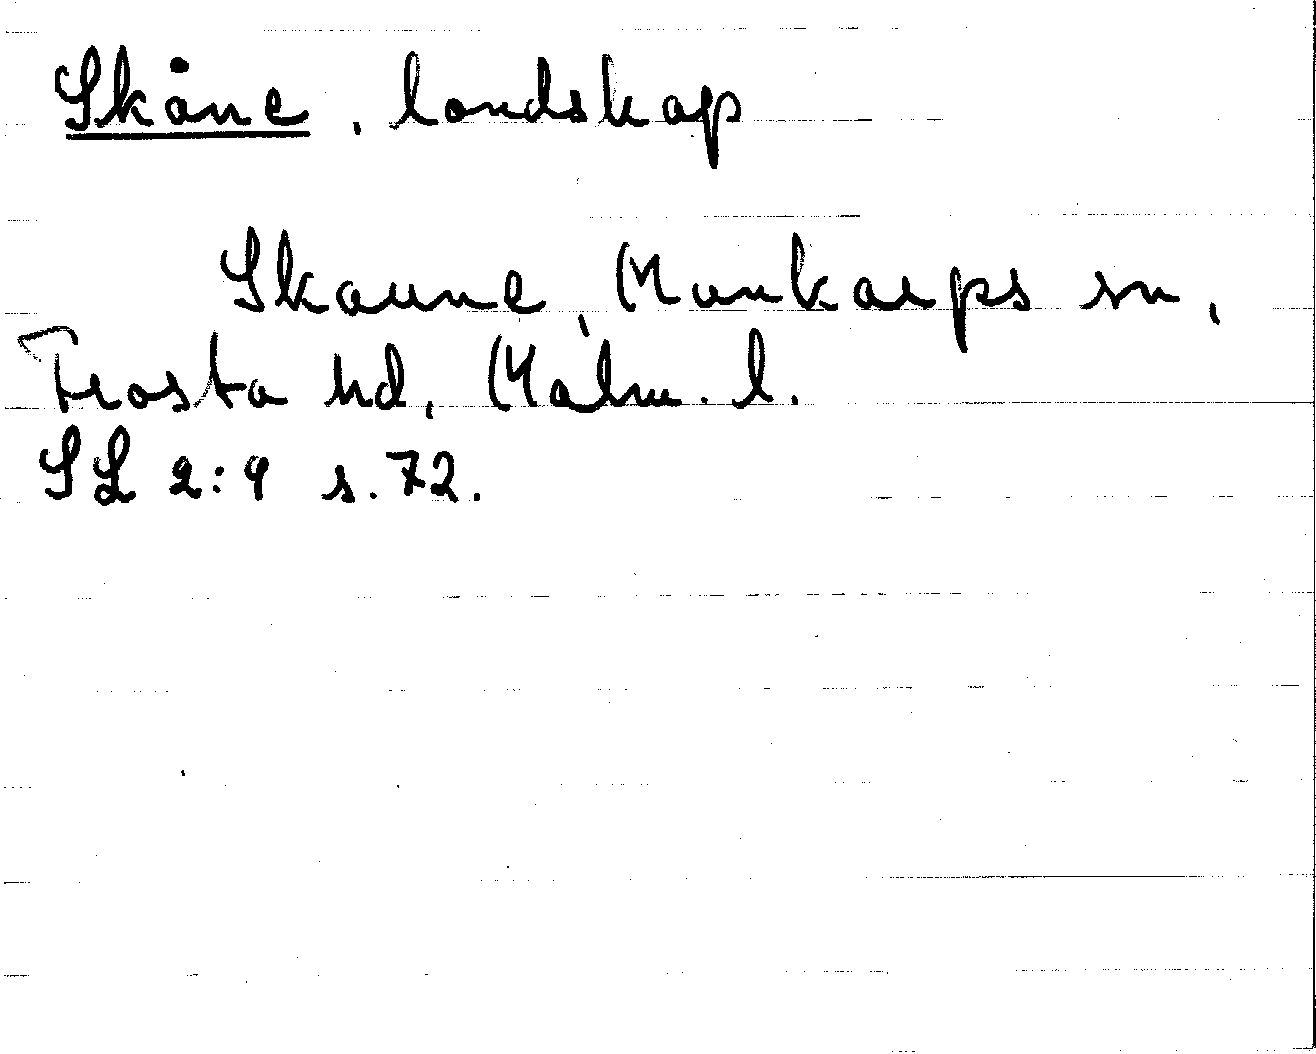 Skåne, landskap
Skaune, Munkarps sn,
Frosta hd, Malm. l.
SL 2:9 s. 72.